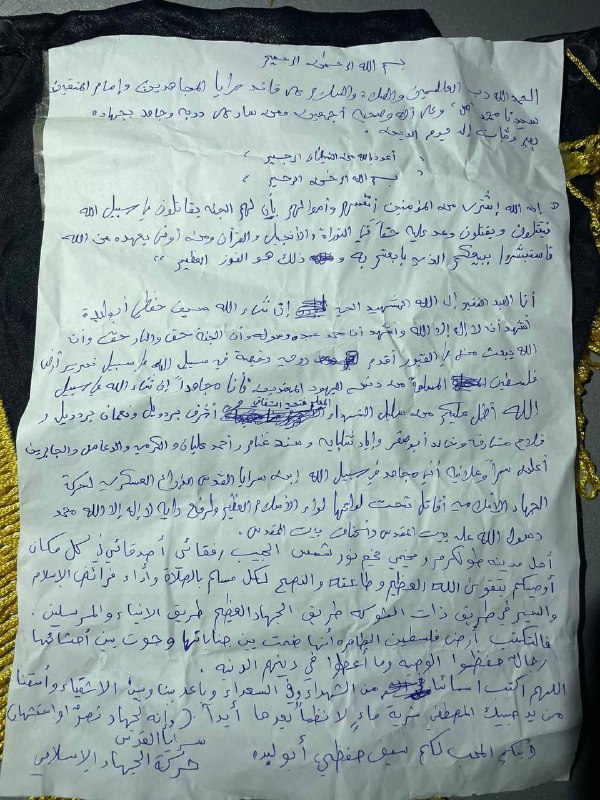 بسم الله الرحمن الرحيم
الحمد لله رب العالمين والصلاة والسلام على قائد سرايا المجاهدين وإمام المتقين
سيدنا محمد وعلى آله وصحبه أجمعين ومن سار على دربه وجاهد بجهاده
إلى يوم الدين
أعوذ بالله من الشيطان الرجيم
بسم الله الرحمن الرحيم
إن الله إشترى من المؤمنين أنفسهم وأموالهم بأن لهم الجنة يقاتلون في سبيل الله
فيقتلون و يقتلون وعد عليه حقا في التوراة والأنجيل والقرآن ومن أوفى بعهده من الله
فاستبشروا ببيعكم الذي بايعتم به و ذلك هو الفوز العظيم
أنا العبد الفقير إلى الله الشهيد الحي إن شاء الله سيف حفظي أبو لبدة
أشهد أن لا إله إلا الله وأشهد أن محمد عبده ورسوله وأن الجنة حق والنار حق وأن
الله يبعث من في القبور أقدم روحي رخيصة في سبيل الله في سبيل تحرير أرض
فلسطين المسلمة من دنس اليهود فأنا مجاهداً إن شاء الله في سبيل
الله أطل عليكم من الشهداء بردويل ونعمان بردويل و
مشارقة وخالد أبو صقر وإياد ثقلباية و سند غنام وأحمد عليان والكرمي والدعامل والجابرين
أعلنه سراً وعلانية أنه مجاهد في سبيل الله ابن سرايا القدس الذراع العسكري لحركة
الجهاد الاسلامي أقاتل تحت لوائها لواء الأسلام العظيم ولرفع راية لا إله إلا الله محمد
رسول الله على بيت المقدس وأكناف بيت المقدس.
أهل مدينة طولكرم و مخيمي مخيم نور شمس الحبيب رفقائي أصدقائي في كل مكان
أوصيكم بتقوى الله العظيم و طاعته والنصح لكل مسلم بالصلاة وأداء فرائض الإسلام
والسير في طريق ذات الشوكة طريق الجهاد العظيم طريق الانبياء والمرسلين.
فالتكتب أرض فلسطين الطاهرة أنها ضمت بين جنباتها وحوت بين أحشائها
رجالة حفظوا الوصية وما أعطوا في دينهم الدنية.
اللهم اكتب أسمائنا من الشهداء وفي السعداء وباعد بيننا وبين الاشقياء وأسقنا
من يد حبيبك المصطفى شربة ماء لا نظمأ بعدها أبداً. (وإنه لجهاد نصرٌ أو استشهاد)
سرايا القدس
إبنكم المحب لكم سيف حفظي أبو لبده
حركة الجهاد الإسلامي